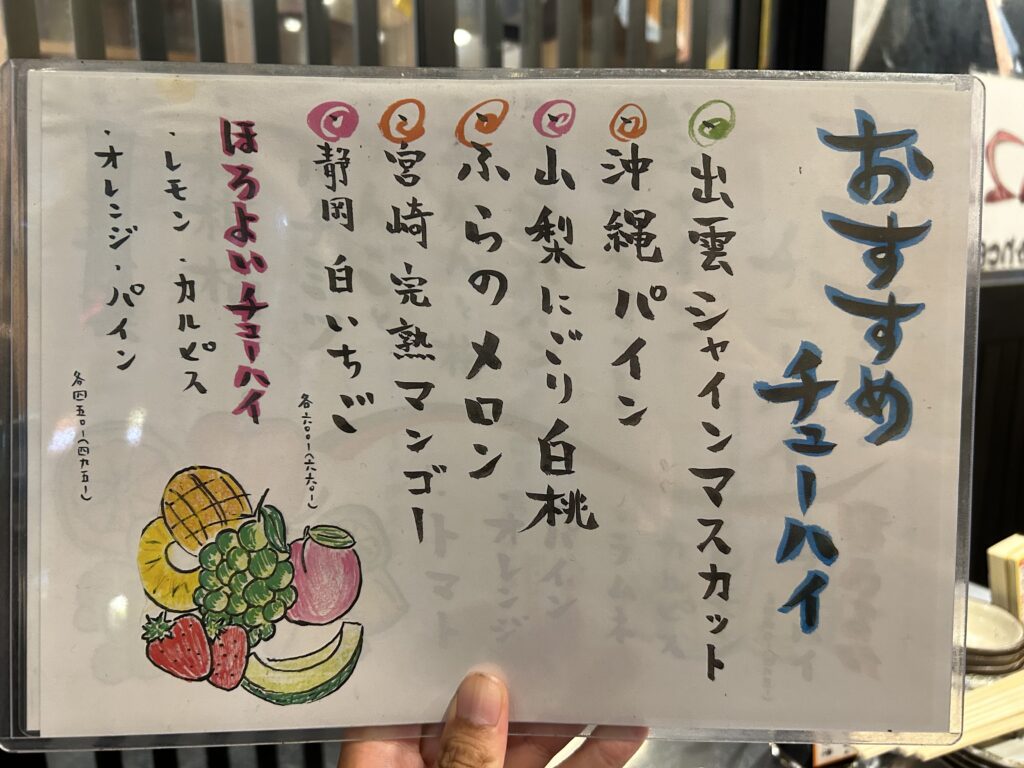 おすすめ
チューハイ
出雲シャインマスカット
沖縄パイン
山梨にごり白桃
ふらのメロン
宮崎完熟マンゴー
静岡白いちご
各六〇〇ー(六六〇ー)
ほろよいチューハイ
・レモン・カルピス
・オレンジ・パイン
各四五〇ー(四九五ー)